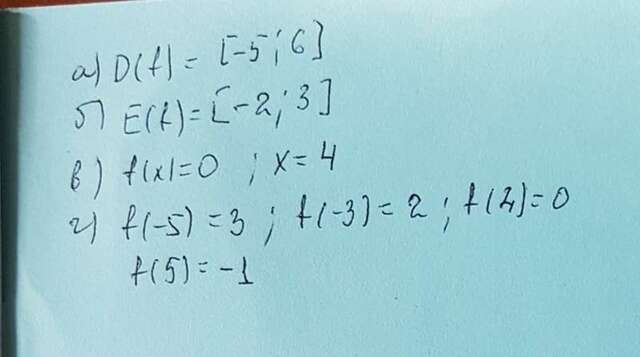 а) D(f) = [-5; 6]
б) E(f) = [-2; 3]
в) f(x) = 0 ; x = 4
г) f(-5) = 3 ; f(-3) = 2 ; f(4) = 0
f(5) = -1